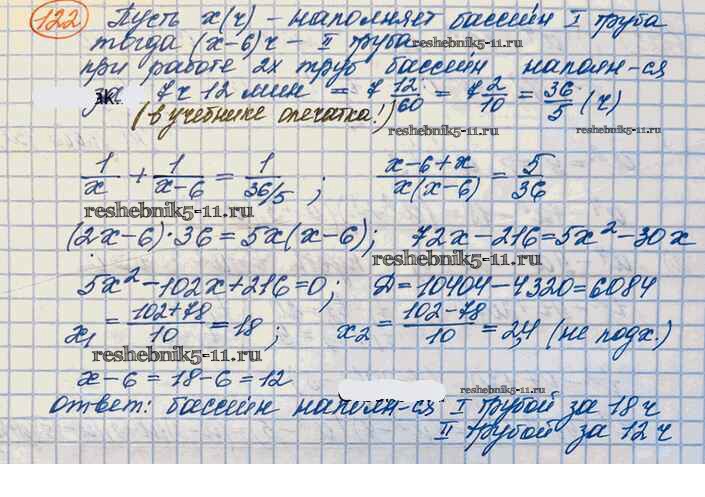 122 Пусть x(ч) - наполняет бассейн I труба
тогда (x-6)ч - II труба reshebnik5-11.ru
при работе 2х труб бассейн наполн-ся
за 7ч 12 мин = 7 12/60 = 7 2/10 = 36/5 (ч)
(в учебнике опечатка!) reshebnik5-11.ru
1/x + 1/(x-6) = 1/(36/5) ; (x-6+x)/(x(x-6)) = 5/36
reshebnik5-11.ru
(2x-6)·36 = 5x(x-6); 72x-216=5x²-30x
reshebnik5-11.ru
5x²-102x+216=0; D=10404-4320=6084
x₁ = (102+78)/10 = 18; x₂ = (102-78)/10 = 2,4 (не подх.)
reshebnik5-11.ru
x-6=18-6=12
reshebnik5-11.ru
ответ: бассейн наполн-ся I трубой за 18 ч
II трубой за 12 ч